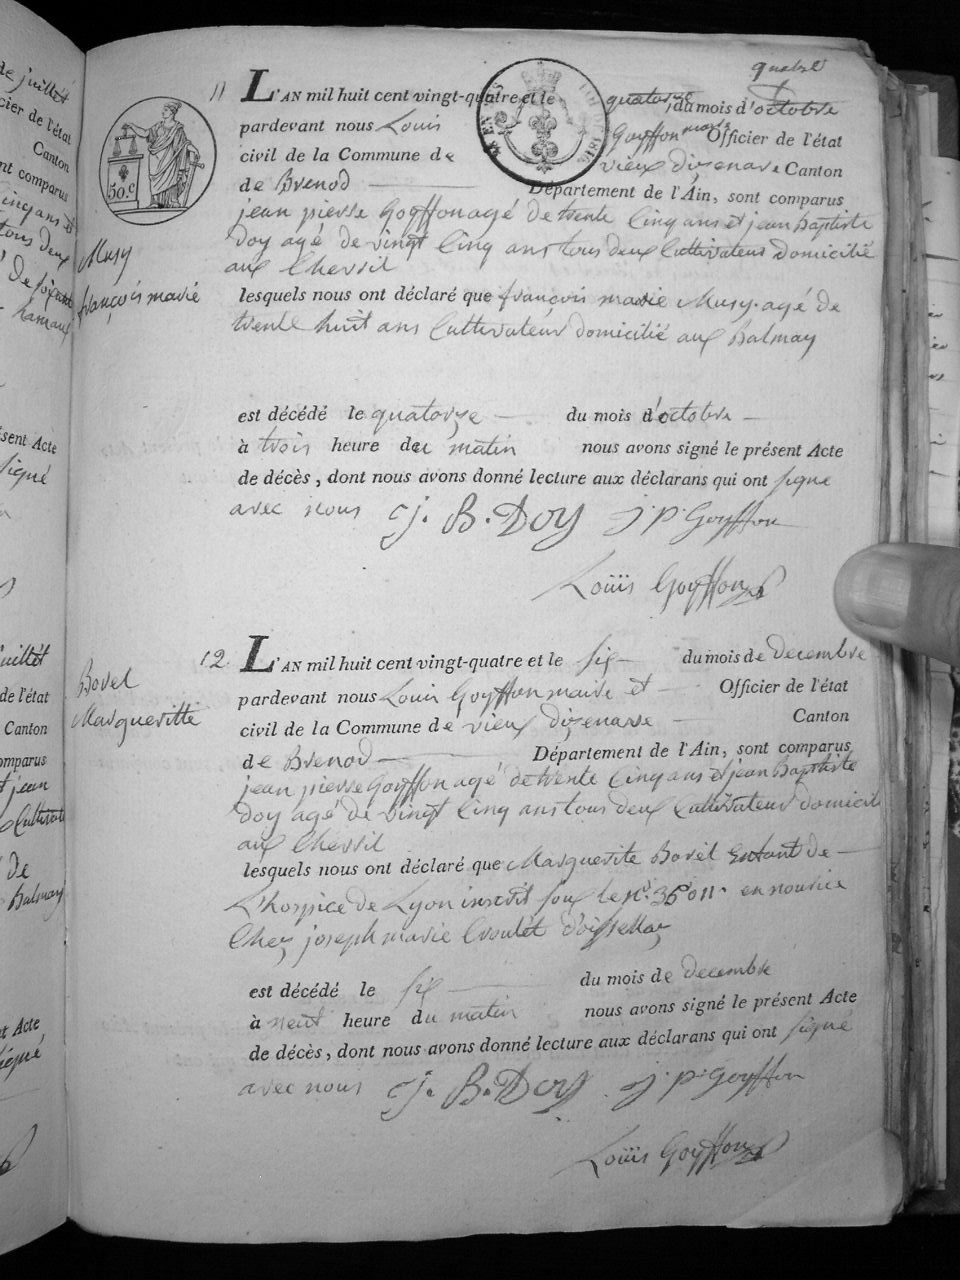 de juillet
cier de l'état
Canton
nt comparus
cinq ans et
tous deux
hamaux
ésent Acte
signé
juillet
de l'état
Canton
omparus
t jean
Cultivat
de
Balmay
nt Acte
signé
quatre
11 L'AN mil huit cent vingt-quatre et le quatorze du mois d'octobre
pardevant nous Louis Goyffon maire Officier de l'état
civil de la Commune de vieux dizenare Canton
de Brenod Département de l'Ain, sont comparus
jean pierre Goyffon agé de trente Cinq ans et jean Baptiste
Doy agé de vingt Cinq ans tous deux Cultivateurs Domicilié
aux Chevril
50.c
Musy
françois marie
lesquels nous ont déclaré que françois marie Musy agé de
trente huit ans Cultivateur domicilié aux Balmay
est décédé le quatorze du mois d'octobre
à trois heure du matin nous avons signé le présent Acte
de décès, dont nous avons donné lecture aux déclarans qui ont signe
avec nous j. B. Doy j. p. Goyffon
Louïs Goyffon
12 L'AN mil huit cent vingt-quatre et le six du mois de decembre
Bovel
Margueritte
pardevant nous Louis Goyffon maire et Officier de l'état
civil de la Commune de vieux dizenare Canton
de Brenod Département de l'Ain, sont comparus
jean pierre Goyffon agé de trente Cinq ans et jean Baptiste
Doy agé de vingt Cinq ans tous deux Cultivateur domicil
aux Chevril
lesquels nous ont déclaré que Marguerite Bovel Enfant de
L'hospice de Lyon inscrit sous le n° en nourice
Chez joseph marie Croulet
est décédé le six du mois de decembre
à neuf heure du matin nous avons signé le présent Acte
de décès, dont nous avons donné lecture aux déclarans qui ont signé
avec nous j. B. Doy j. p. Goyffon
Louïs Goyffon